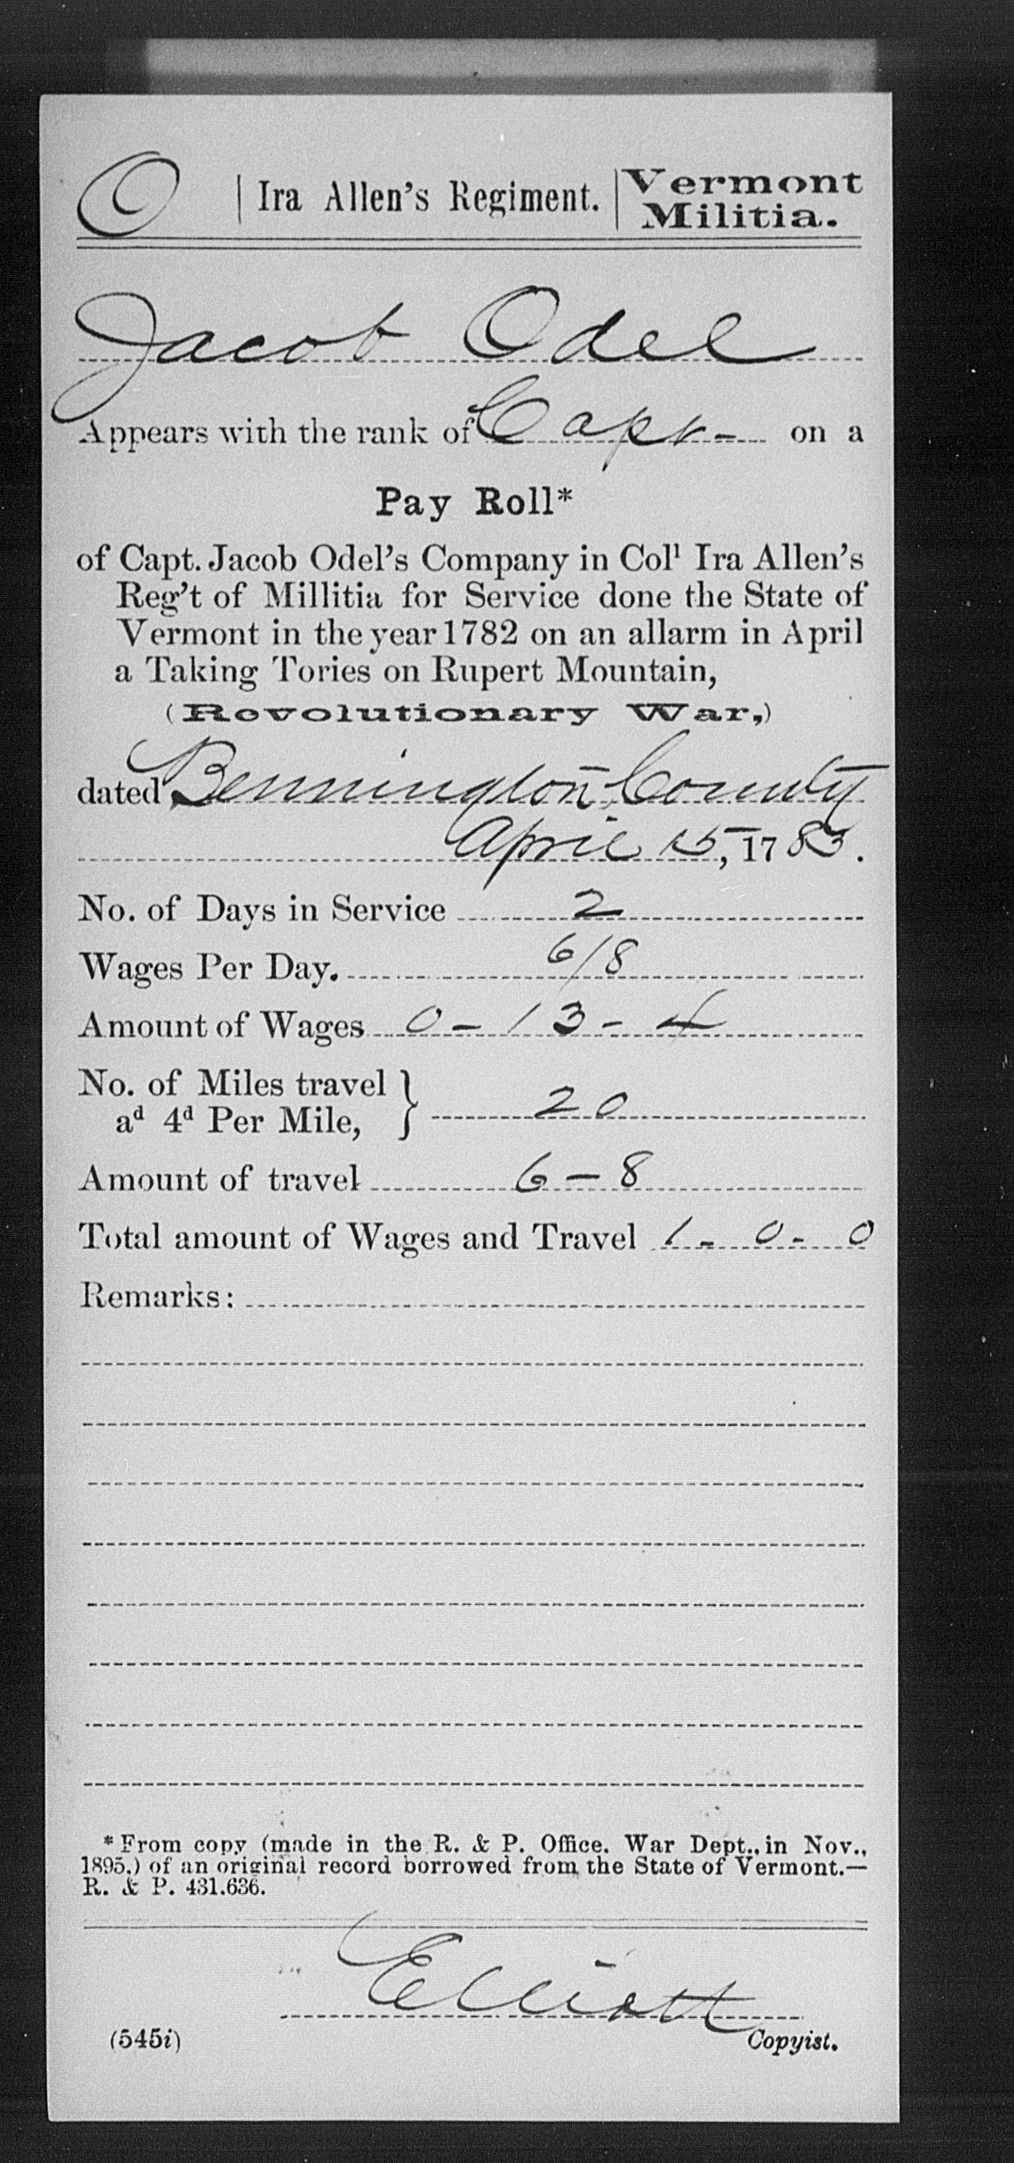 O | Ira Allen's Regiment. | Vermont Militia.
Jacob Odel
Appears with the rank of Capt- on a
Pay Roll*
of Capt. Jacob Odel's Company in Colˡ Ira Allen's
Reg't of Millitia for Service done the State of
Vermont in the year 1782 on an allarm in April
a Taking Tories on Rupert Mountain,
(Revolutionary War,)
dated Bennington County
April 15, 1783.
No. of Days in Service 2
Wages Per Day. 6/8
Amount of Wages 0-13-4
No. of Miles travel
aᵈ 4ᵈ Per Mile, } 20
Amount of travel 6-8
Total amount of Wages and Travel 1-0-0
Remarks:
*From copy (made in the R. & P. Office. War Dept., in Nov.,
1895,) of an original record borrowed from the State of Vermont.—
R. & P. 431.636.
Elliott
(545i) Copyist.